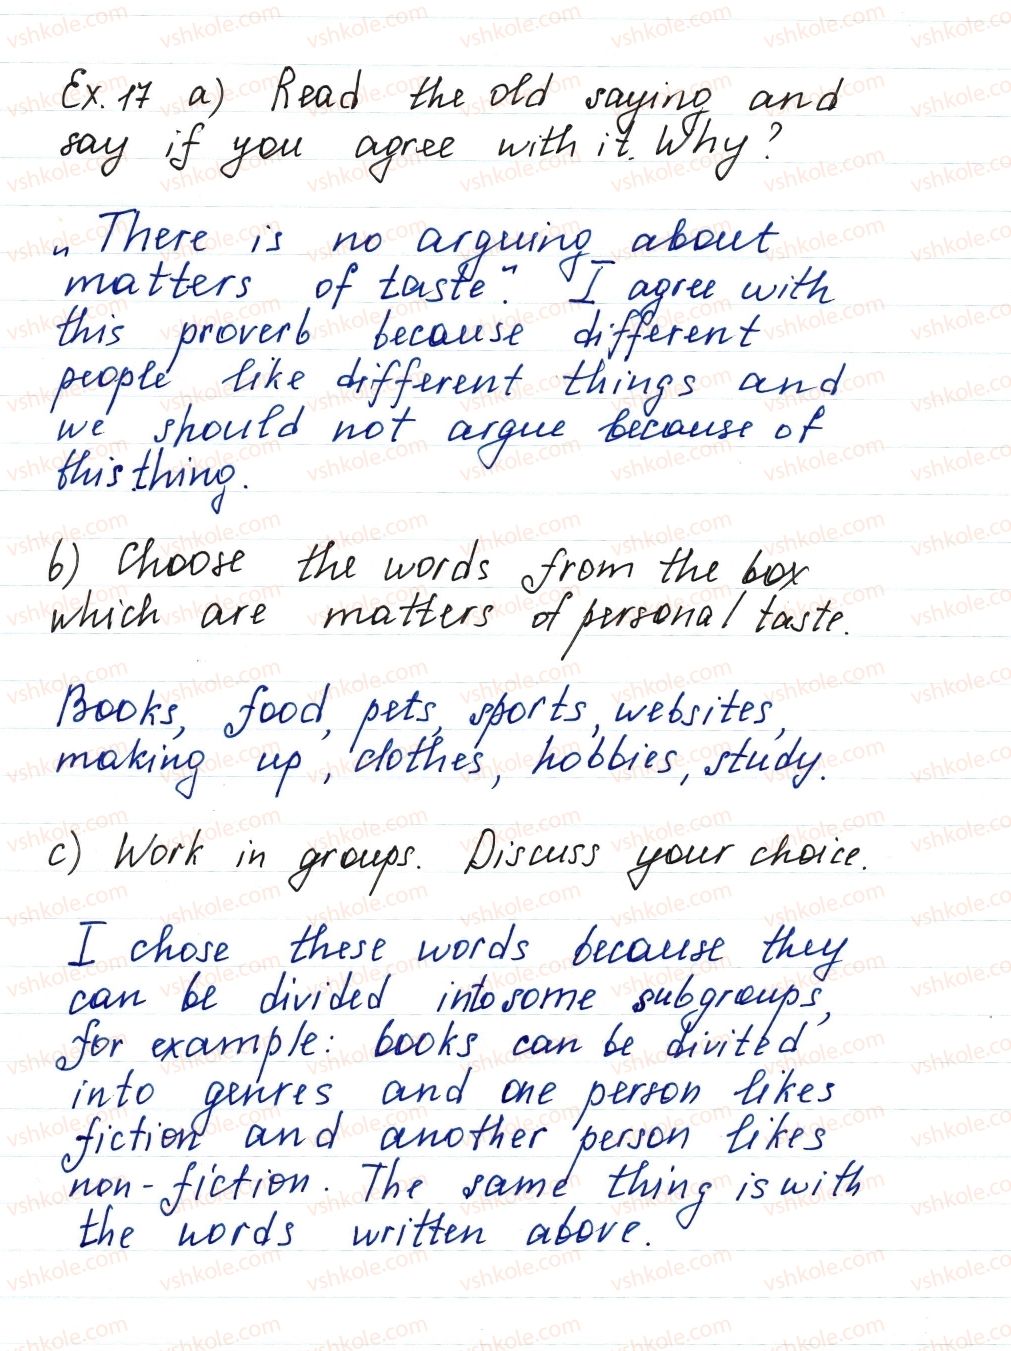 Ex. 17 a) Read the old saying and
say if you agree with it. Why?
„There is no arguing about
matters of taste". I agree with
this proverb because different
people like different things and
we should not argue because of
this thing.
b) Choose the words from the box
which are matters of personal taste.
Books, food, pets, sports, websites,
making up, clothes, hobbies, study.
c) Work in groups. Discuss your choice.
I chose these words because they
can be divided into some subgroups,
for example: books can be divited
into genres and one person likes
fiction and another person likes
non-fiction. The same thing is with
the words written above.
vshkole.com